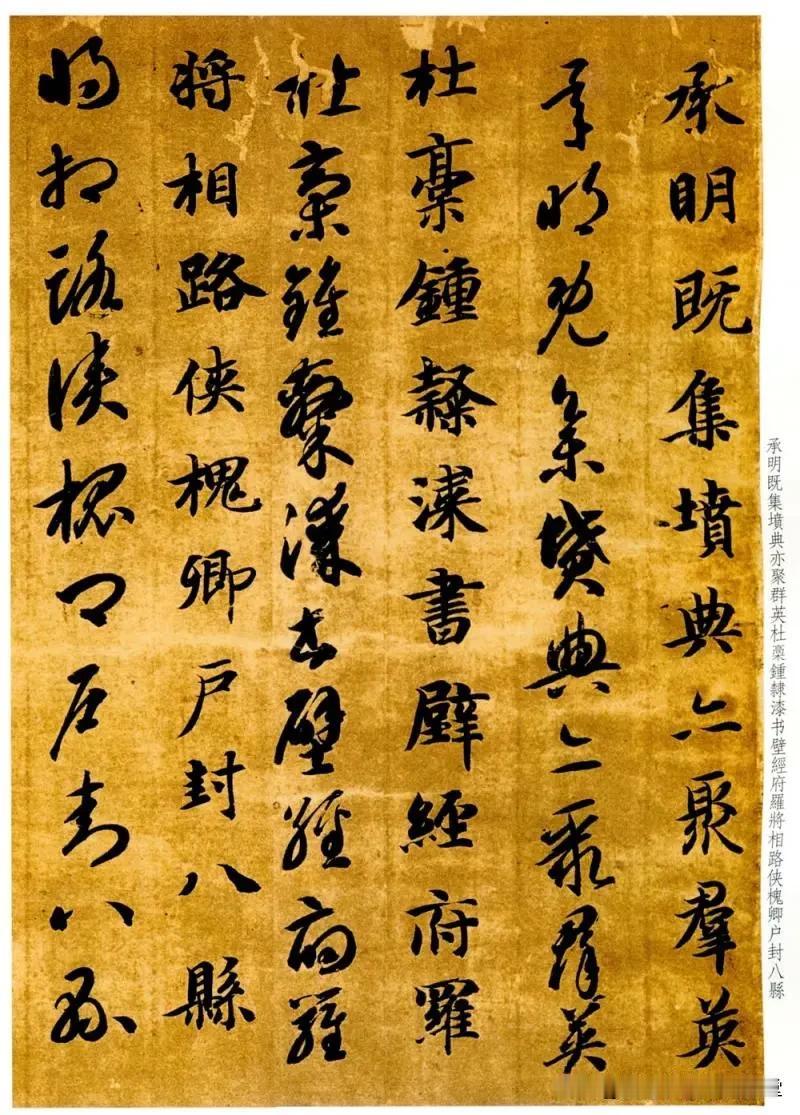 承明既集墳典亦聚羣英
承明既集墳典亦聚羣英
杜稾鍾隸漆書壁經府羅
杜稾鍾隸漆書壁經府羅
將相路俠槐卿户封八縣
將相路俠槐卿户封八縣
承明既集墳典亦聚群英杜稾鍾隸漆书壁經府羅將相路侠槐卿户封八縣